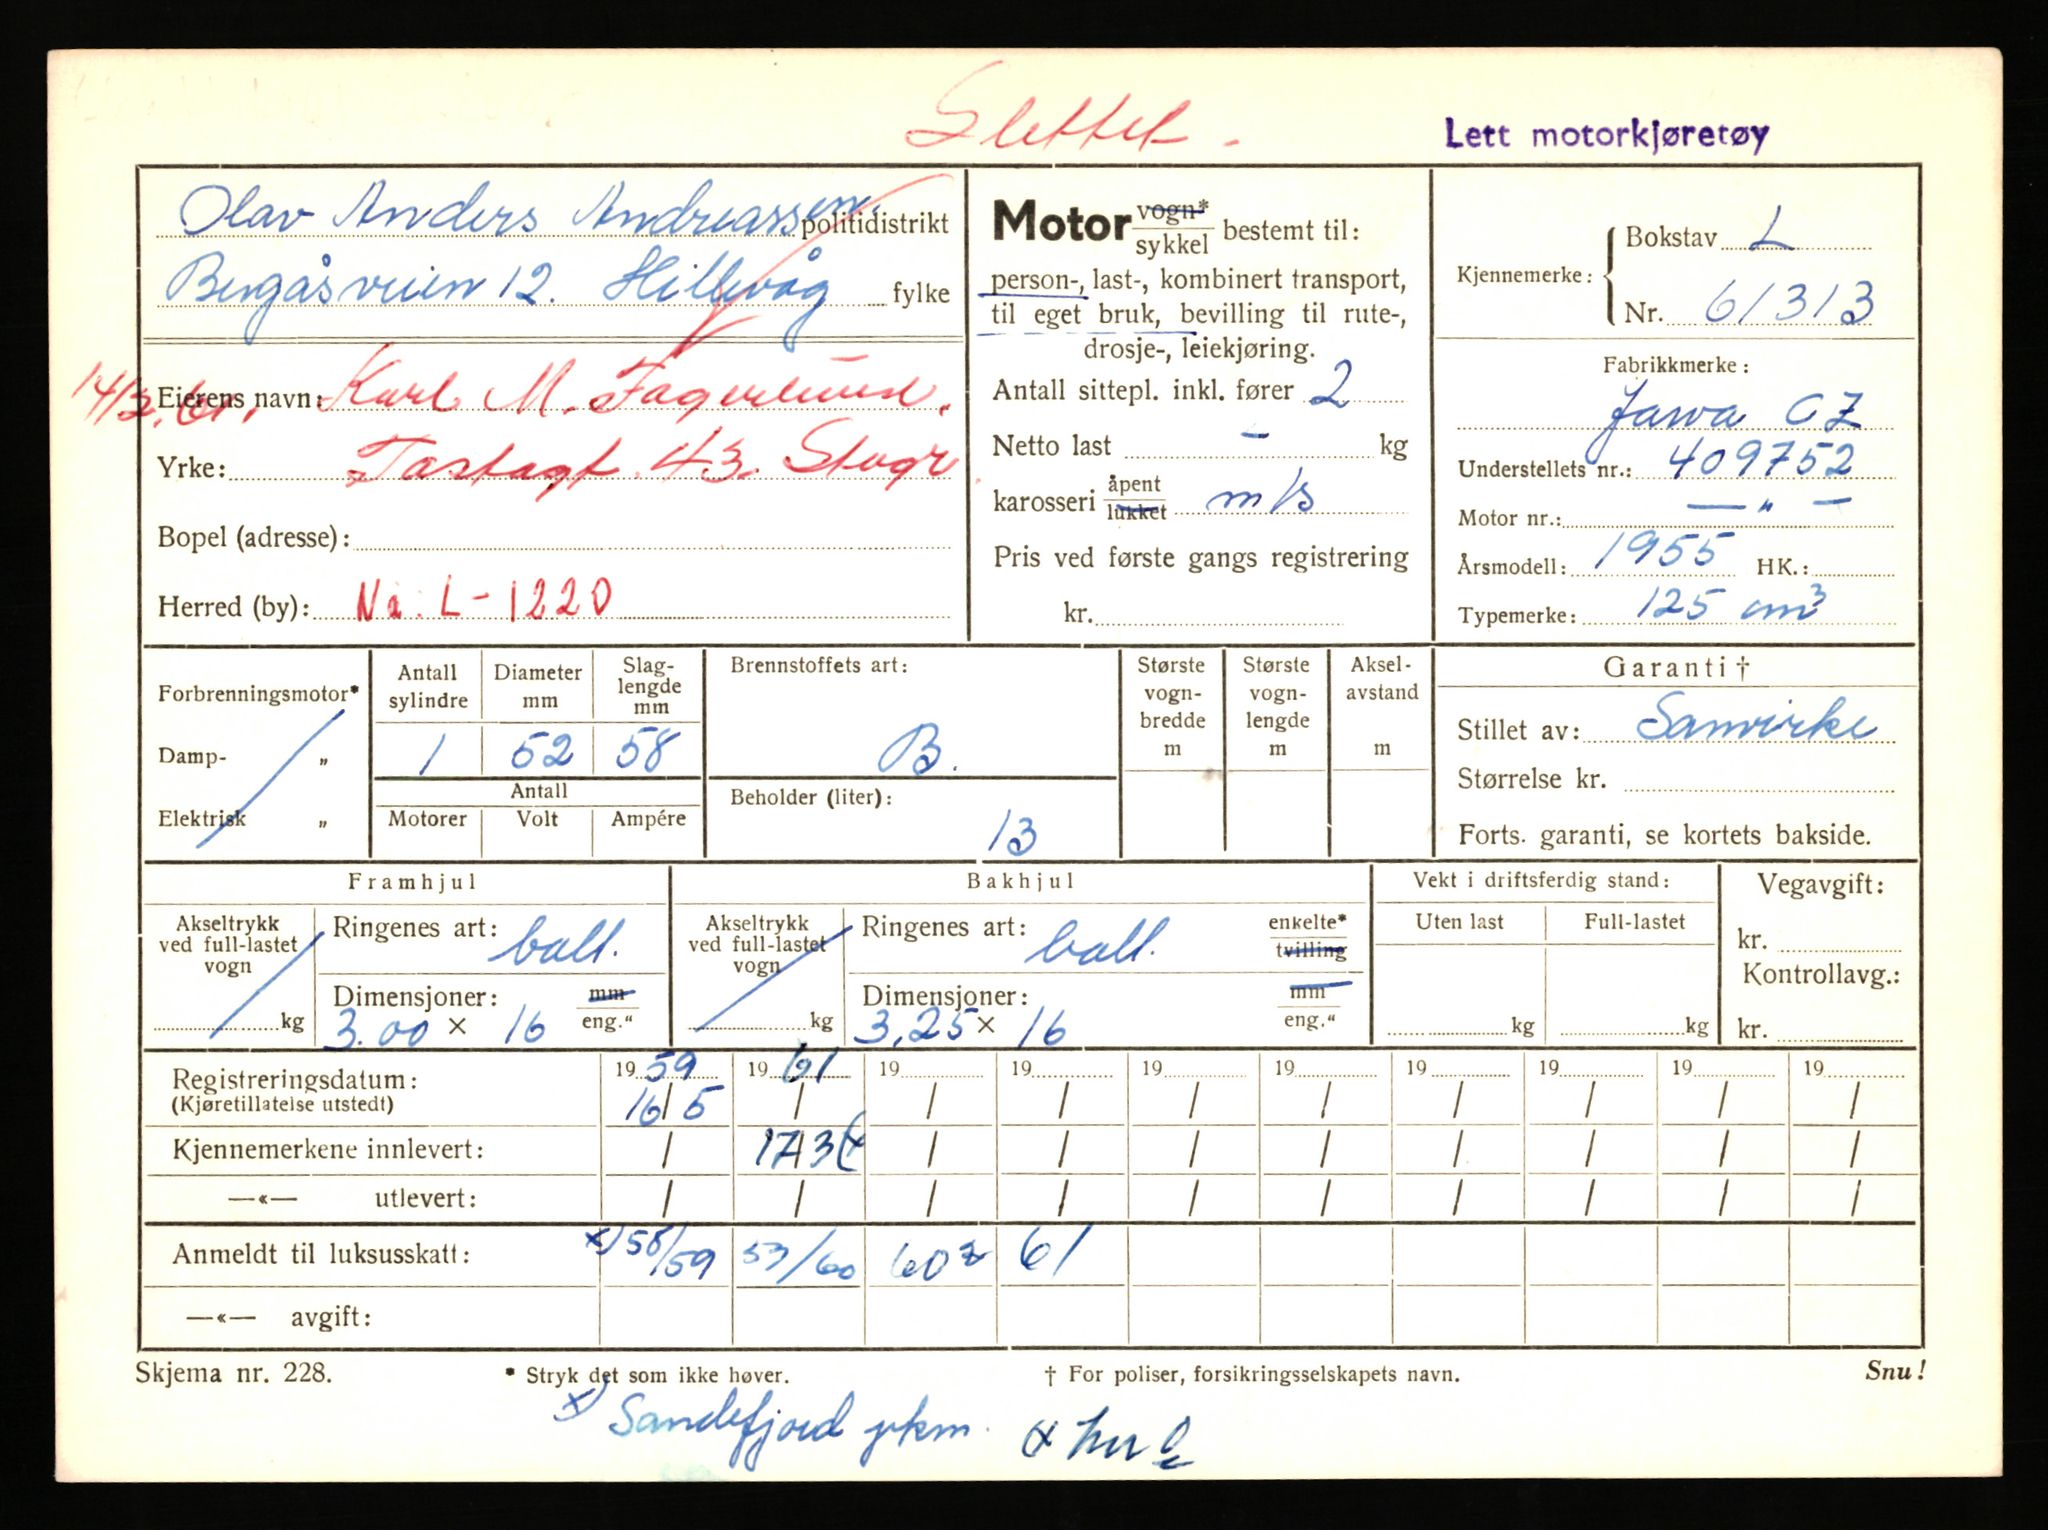 Slettet -
Lett motorkjøretøy
Olav Anders Andreassen politidistrikt
Bergåsveien 12. Hillevåg fylke
14/3.61. Eierens navn: Karl M. Fagerlund.
Yrke: Tastagt. 43. Stvgr
Bopel (adresse):
Herred (by): Nå: L-1220
Motor vogn* sykkel bestemt til:
person-, last-, kombinert transport,
til eget bruk, bevilling til rute-,
drosje-, leiekjøring.
Antall sittepl. inkl. fører 2
Netto last - kg
karosseri åpent lukket m/s
Pris ved første gangs registrering
kr.
Kjennemerke: Bokstav L
Nr. 61313
Fabrikkmerke:
Jawa CZ
Understellets nr.: 409752
Motor nr.: — " —
Årsmodell: 1955 HK.:
Typemerke: 125 cm³
Forbrenningsmotor*
Damp- „
Elektrisk „
Antall sylindre 1
Diameter mm 52
Slag-lengde mm 58
Antall
Motorer Volt Ampére
Brennstoffets art:
B.
Beholder (liter):
13
Største vogn-bredde m
Største vogn-lengde m
Aksel-avstand m
Garanti †
Stillet av: Samvirke
Størrelse kr.
Forts. garanti, se kortets bakside.
Framhjul
Akseltrykk ved full-lastet vogn
kg
Ringenes art: ball.
Dimensjoner: mm eng."
3.00 × 16
Bakhjul
Akseltrykk ved full-lastet vogn
kg
Ringenes art: ball. enkelte* tvilling
Dimensjoner: mm eng."
3,25 × 16
Vekt i driftsferdig stand:
Uten last Full-lastet
kg kg
Vegavgift:
kr.
Kontrollavg.:
kr.
Registreringsdatum: 19 59 19 61 19 19 19 19 19 19 19 19
(Kjøretillatelse utstedt) 16/5 / / / / / / / / /
Kjennemerkene innlevert: / 17/3 (x / / / / / / / /
—«— utlevert: / / / / / / / / / /
Anmeldt til luksusskatt: x) 58/59 53/60 60² 61
—«— avgift:
Skjema nr. 228. * Stryk det som ikke høver. † For poliser, forsikringsselskapets navn. Snu!
x) Sandefjord pkm.